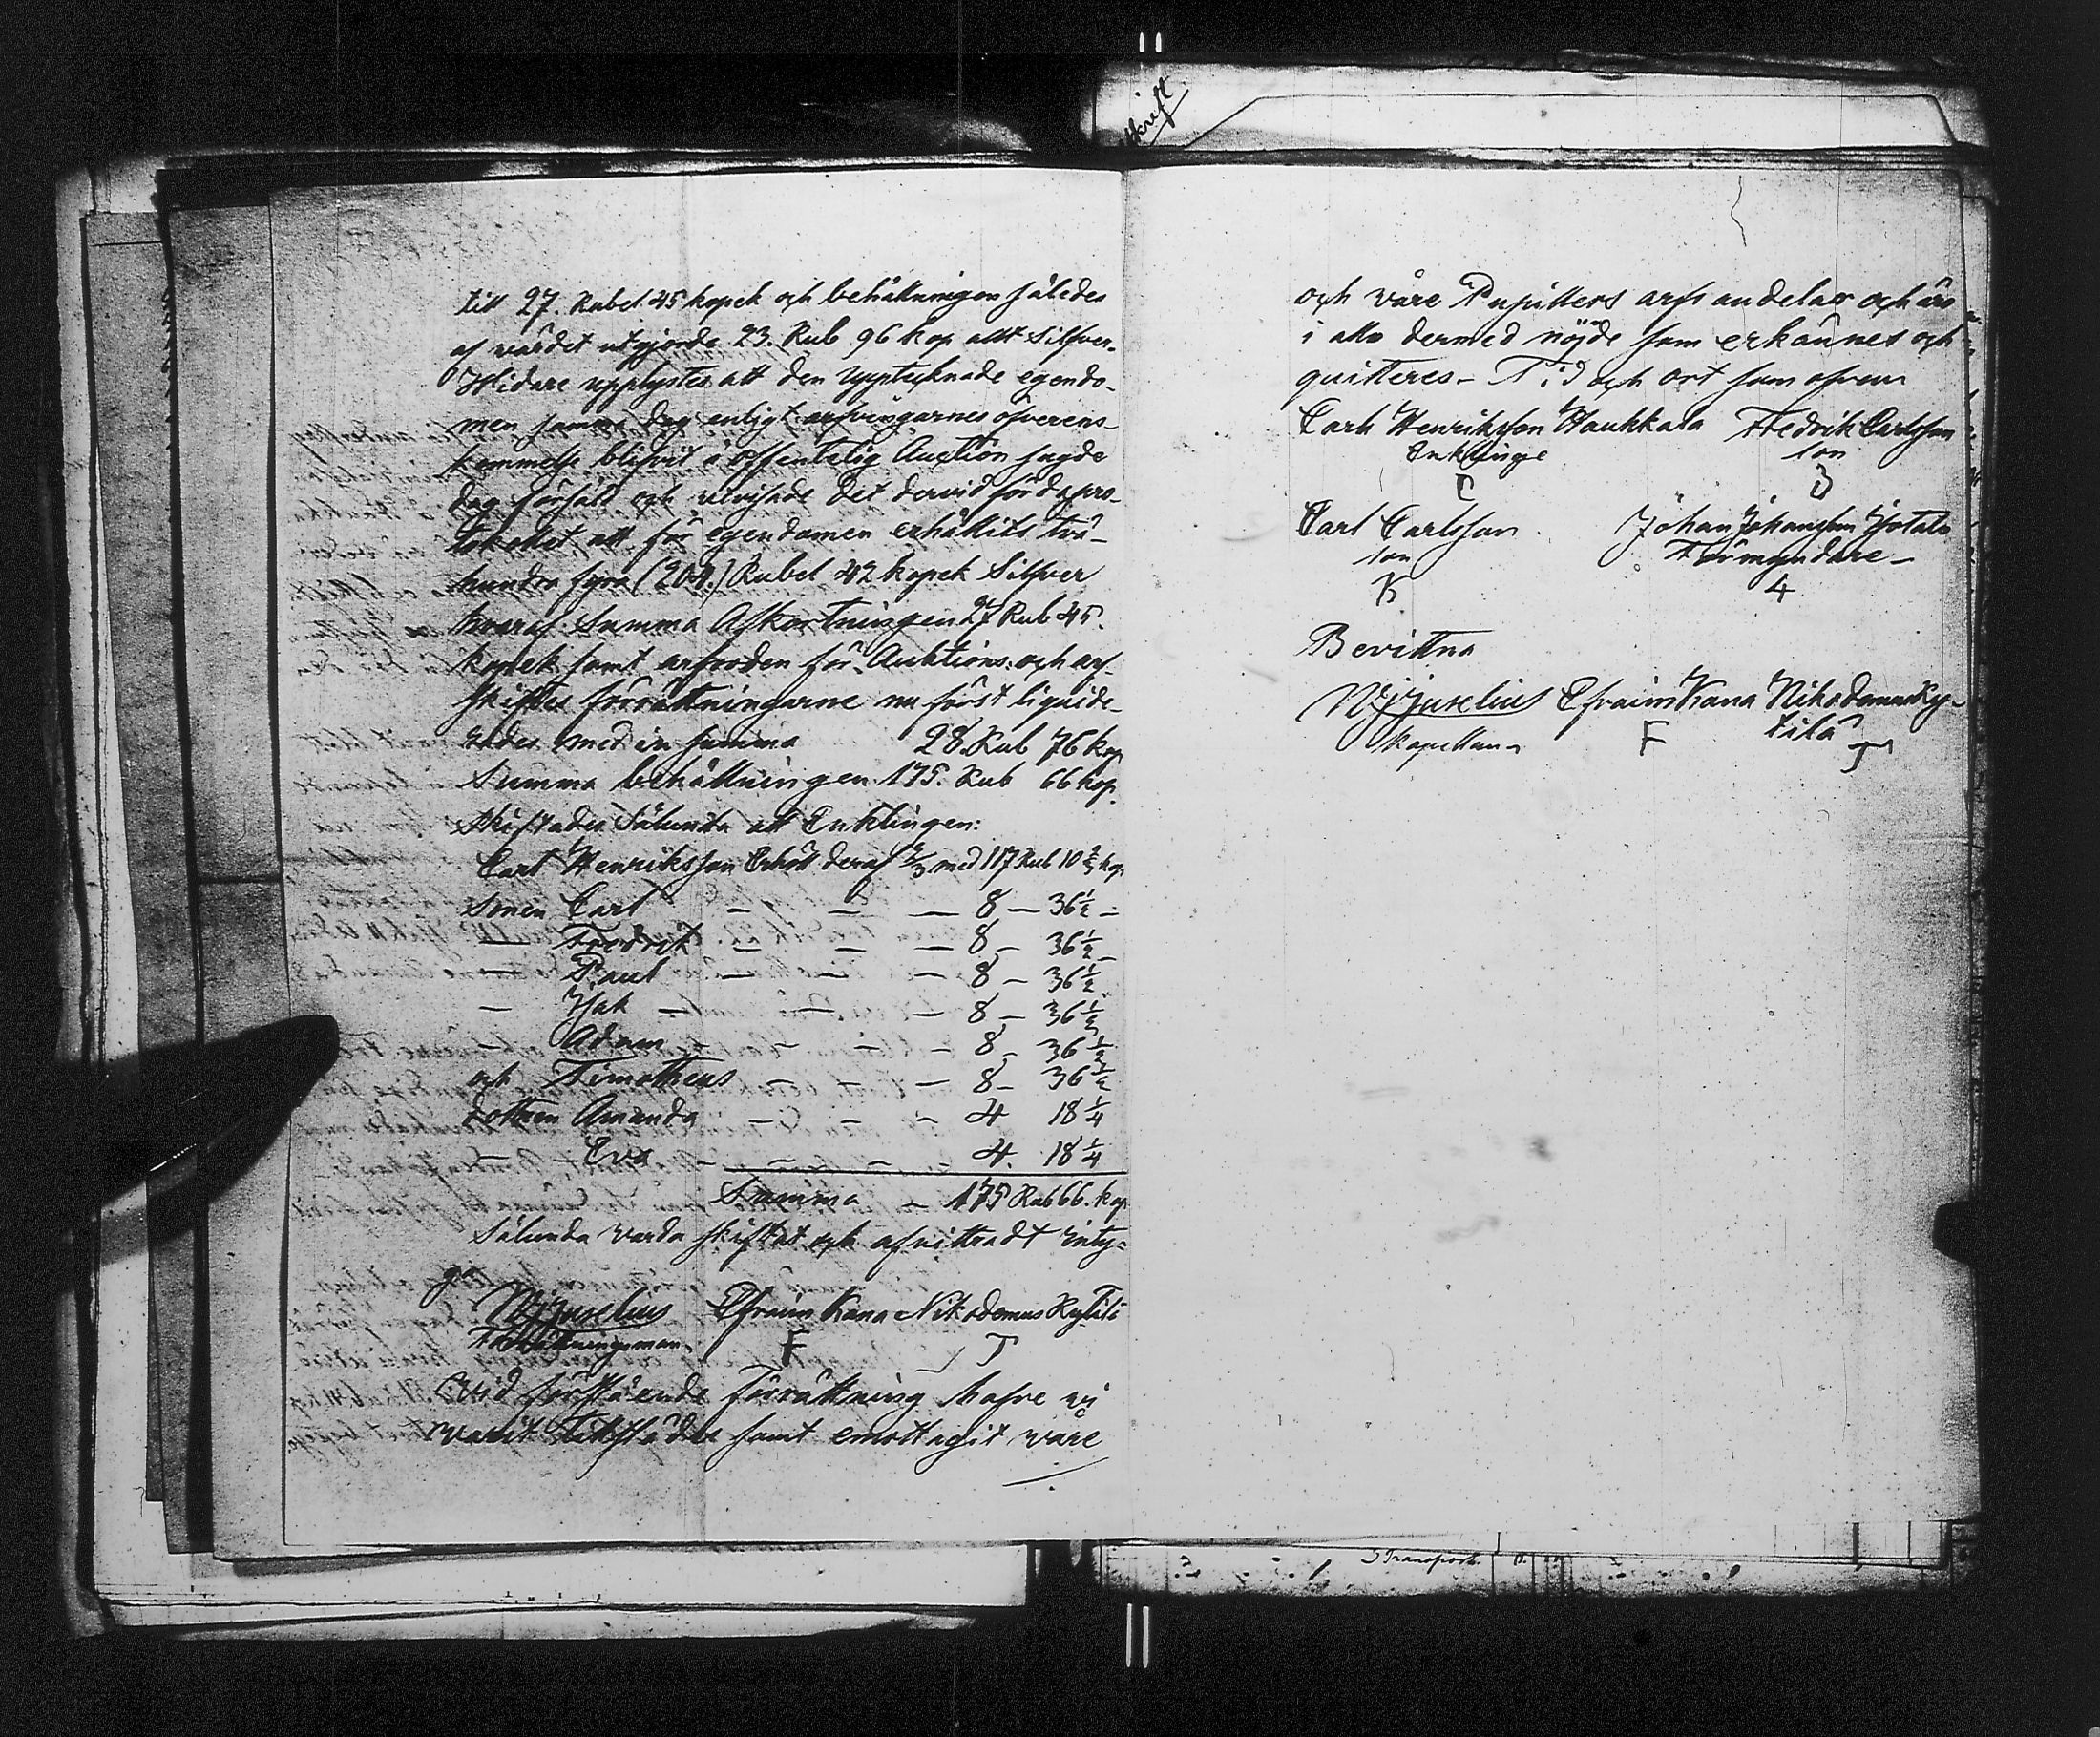 till 27. Rubel 45 kopek och behållningen således
af värdet utgjorde 23. Rub 96 kop allt Silfver.
Widare upplystes att den upptecknade egendo-
men samma dag enligt arfvingarnes öfverens-
kommelse blifvit å offentelig Auction sagde
dag försåld och utvisade det dervid förda pro-
tokollet att för egendomen erhållits två-
hundra fyra (204.) Rubel 42 kopek Silfver
hvaraf Summa Afkortningen 27 Rub 45.
kopek samt arfvoden för Auktions och arf-
skiftes förrättningarne nu först liquide-
rades med en summa 28. Rub 76 kop
Summa behållningen 175. Rub 66 kop.
Skiftades Sålunda att Enklingen:
Carl Henriksson Erhöll deraf 2/3 med 117 Rub 10 2/3 kop
Sonen Carl — — — 8 — 36 1/2 —
— Fredrik — — — 8 — 36 1/2 —
— Paul — — — 8 — 36 1/2
— Isak — — — 8 — 36 1/2
— Adam — — — 8 — 36 1/2
och Timotheus — — — 8 — 36 1/2
dottren Amanda — — — 4 18 1/4
— Eva — — — 4. 18 1/4
Summa — 175 Rub 66. kop
Sålunda varda skiftat och afvittradt inty-
ga
Wjuselius Efraim Kana Nikodemus Kytilä
Förrättningsman F T
Vid förstående förrättning hafve vi
varit tillstädes samt emottagit våre
Skrift
och våre Pupillers arfs andelar och äro
i allo dermed nöjde som erkännes och
quitteres — Tid och ort som ofvan
Carl Henriksson Haukkala Fredrik Carlsson
Enklinge son
C
Carl Carlsson Johan Johansson Isotalo
son Förmyndare —
K 4
Bevittna
Wjuselius Efraim Kana Nikodemus Ky-
Kapellan F tilä T
Transport